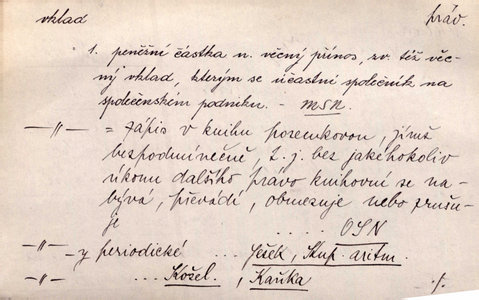 vklad práv.
1. peněžní částka n. věcný přínos, zv. též věc-
ný vklad, kterým se účastní společník na
společenském podniku. - MSN.
—„— = zápis v knihu pozemkovou, jímž
bezpodmínečně, t. j. bez jakéhokoliv
úkonu dalšího, právo knihovní se na-
bývá, převádí, obmezuje nebo zrušu-
je . . . . OSN
—„— y periodické ... Ješek, Stup. aritm.
—„— ... Košel. , Kaňka ./.